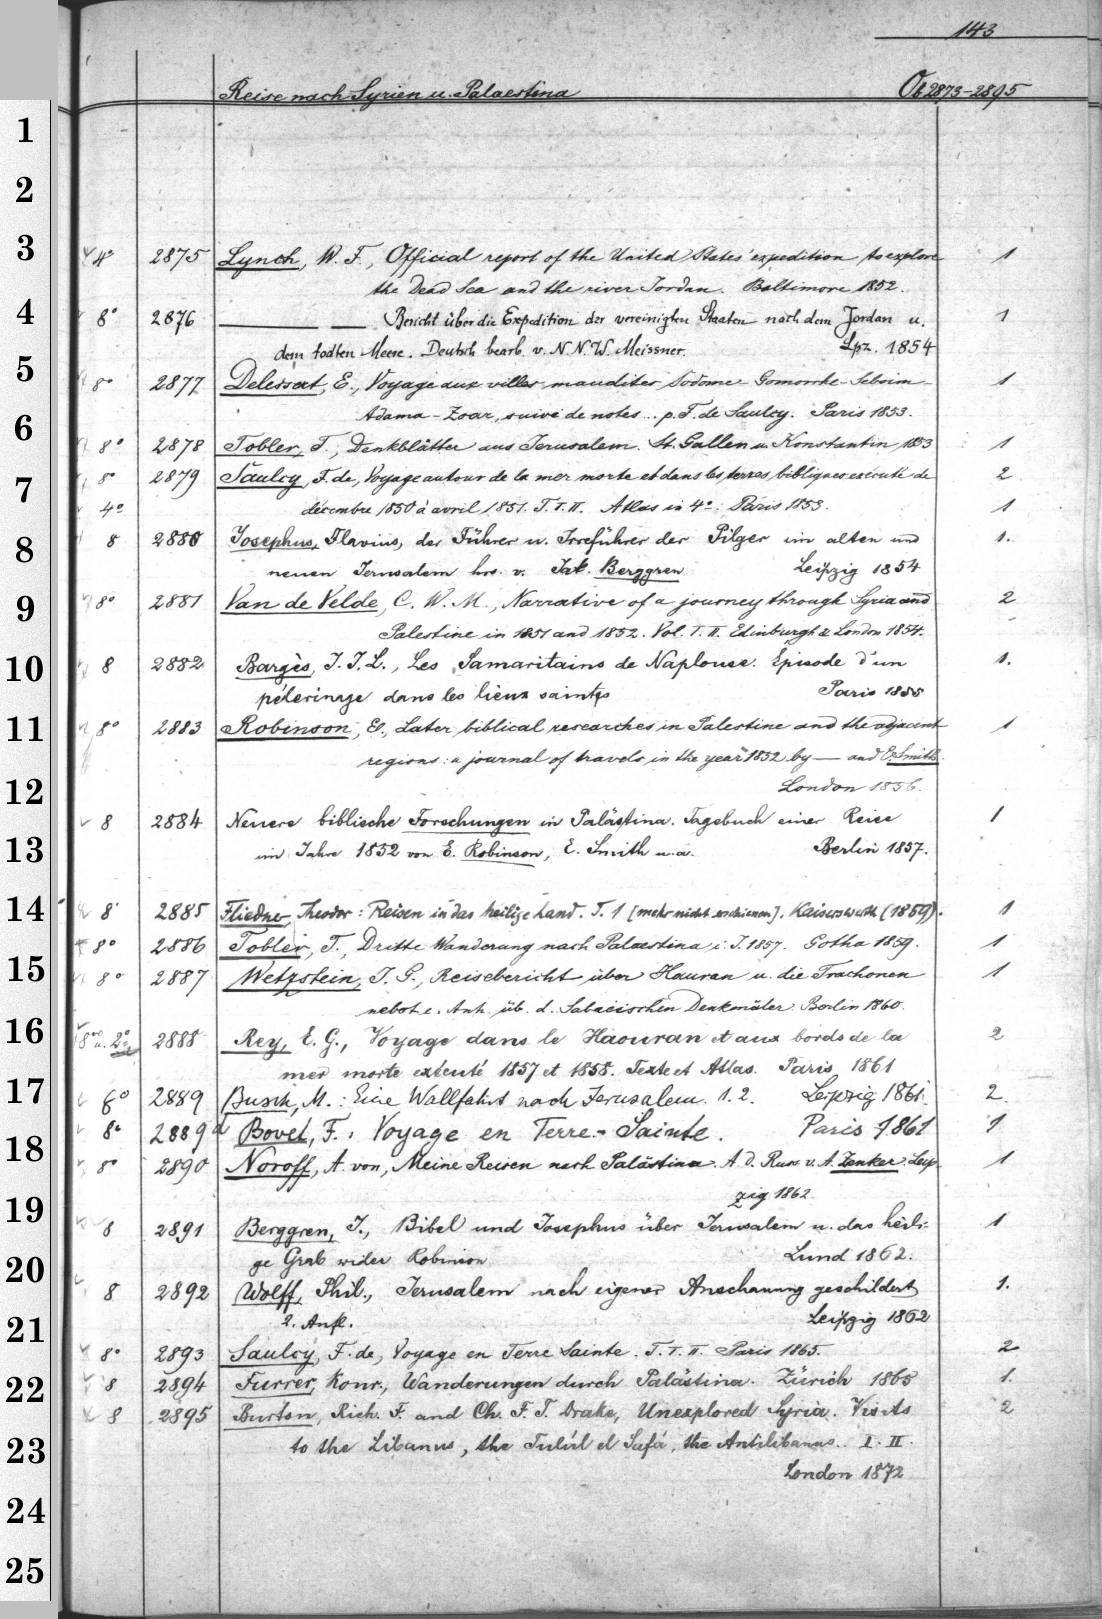 143
Reise nach Syrien u. Palaestina Ob 2873-2895
1
2
3
4° 2875 Lynch, W. F., Official report of the United States' expedition to explore 1
the Dead Sea and the river Jordan. Baltimore 1852.
4
8° 2876 ——— — Bericht über die Expedition der vereinigten Staaten nach dem Jordan u. 1
dem todten Meere. Deutsch bearb. v. N. N. W. Meissner. Lpz. 1854
5
8° 2877 Delessert, E., Voyage aux villes maudites Sodome-Gomorrhe-Seboim- 1
Adama-Zoar, suivi de notes... p. F. de Saulcy. Paris 1853.
6
8° 2878 Tobler, T., Denkblätter aus Jerusalem. St. Gallen u. Konstantin, 1853 1
8° 2879 Saulcy, F. de, Voyage autour de la mer morte et dans les terres bibliques exécuté de 2
7
4° décembre 1850 à avril 1851. T. I. II. Atlas in 4°. Paris 1853. 1
8
8 2880 Josephus, Flavius, der Führer u. Irreführer der Pilger im alten und 1.
neuen Jerusalem hrs. v. Jak. Berggren Leipzig 1854
9
8° 2881 Van de Velde, C. W. M., Narrative of a journey through Syria and 2
Palestine in 1851 and 1852. Vol. I. II. Edinburgh & London 1854.
10
8 2882 Bargès, J. J. L., Les Samaritains de Naplouse. Episode d'un 1.
pélerinage dans les lieux saintes Paris 1855
11
8° 2883 Robinson, E., Later biblical researches in Palestine and the adjacent 1
regions: a journal of travels in the year 1852 by — and E. Smith.
12
London 1856.
8 2884 Neuere biblische Forschungen in Palästina. Tagebuch einer Reise 1
13
im Jahre 1852 von E. Robinson, E. Smith u. a. Berlin 1857.
14
8 2885 Fliedner, Theodor: Reisen in das heilige Land. T. 1 [mehr nicht erschienen]. Kaiserswerth (1859). 1
8° 2886 Tobler, T., Dritte Wanderung nach Palaestina i. J. 1857. Gotha 1859. 1
15
8° 2887 Wetzstein, J. G., Reisebericht über Hauran u. die Trachonen 1
nebst e. Anh. üb. d. Sabaeischen Denkmäler. Berlin 1860.
16
8vo u. 2° 2888 Rey, E. G., Voyage dans le Haouran et aux bords de la 2
mer morte exécuté 1857 et 1858. Texte et Atlas. Paris 1861
17
6° 2889 Busch, M.: Eine Wallfahrt nach Jerusalem. 1. 2. Leipzig 1861. 2
18
8° 2889a Bovet, F., Voyage en Terre-Sainte. Paris 1861 1
8° 2890 Noroff, A. von, Meine Reisen nach Palästina. A. d. Russ. v. A. Zenker. Leip- 1
zig 1862.
19
8 2891 Berggren, J., Bibel und Josephus über Jerusalem u. das heili- 1
ge Grab wider Robinson Lund 1862.
20
8 2892 Wolff, Phil., Jerusalem nach eigener Anschauung geschildert 1.
21
2. Aufl. Leipzig 1862
8° 2893 Saulcy, F. de, Voyage en Terre Sainte. T. I. II. Paris 1865. 2
22
8 2894 Furrer, Konr., Wanderungen durch Palästina. Zürich 1865 1.
8 2895 Burton, Rich. F. and Ch. F. T. Drake, Unexplored Syria. Visits 2
23
to the Libanus, the Tulúl el Safá, the Antilibanus.. I. II.
London 1872
24
25